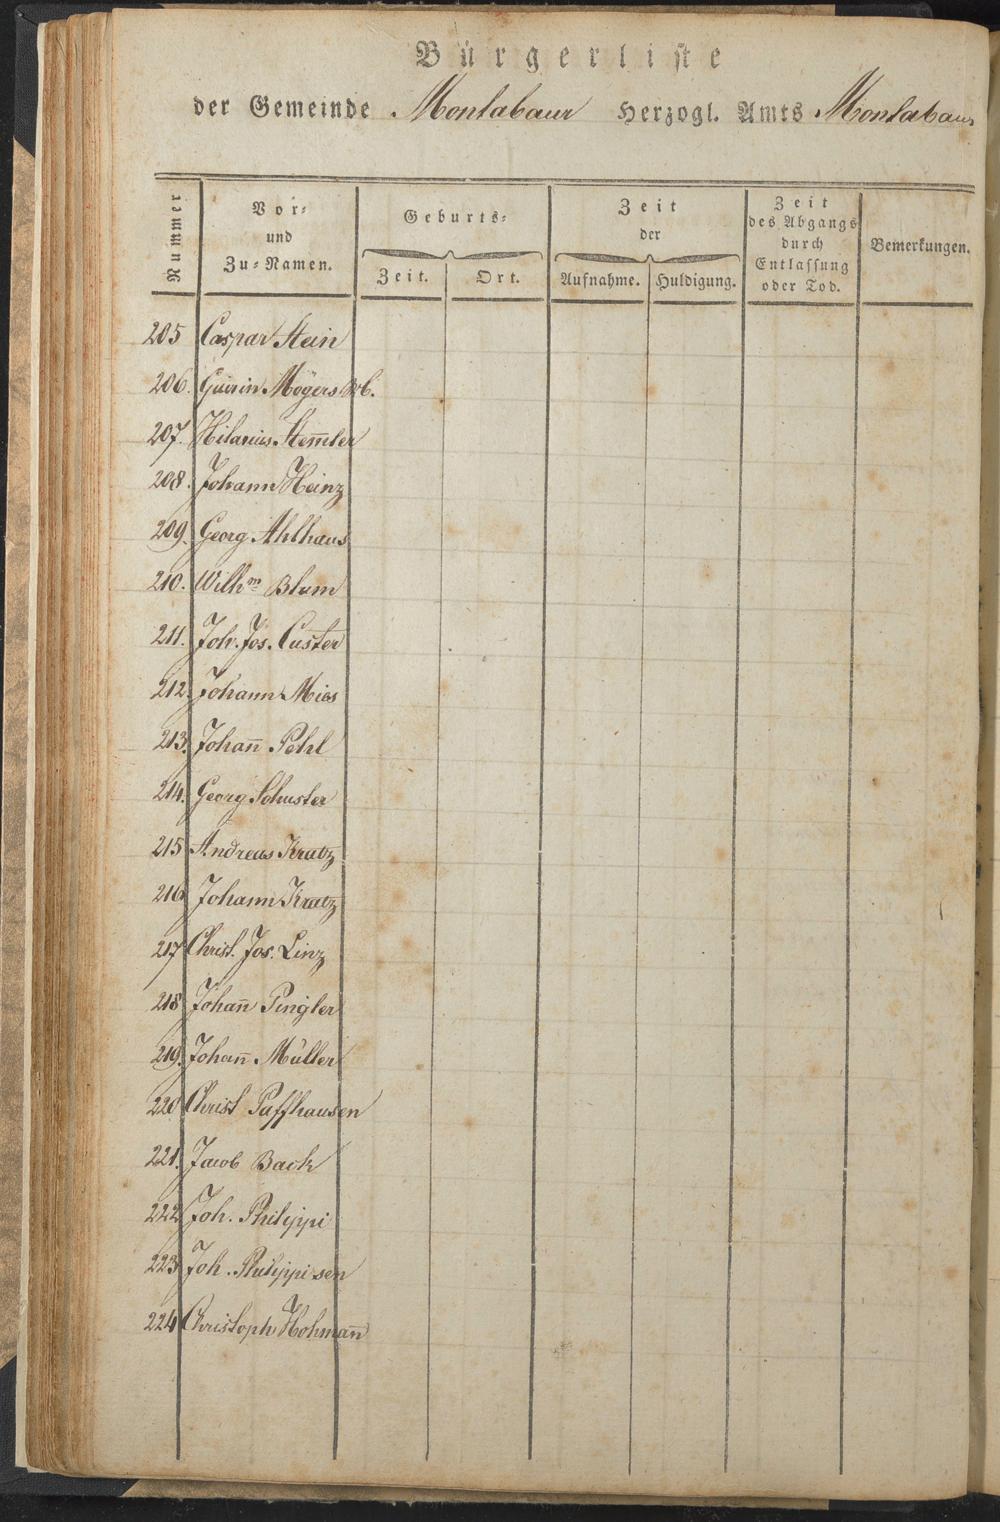 Bürgerliste
der Gemeinde Montabaur Herzogl. Amts Montabaur
Nummer
Vor-
und
Zu-Namen.
Geburts-
Zeit.
Ort.
Zeit
der
Aufnahme.
Huldigung.
Zeit
des Abgangs
durch
Entlassung
oder Tod.
Bemerkungen.
205 Caspar Stein
206. Guirin
207. Hilarius Stem̅ler
208. Johann Heinz
209. Georg Ahlhaus
210. Wilhm Blum
211. Joh. Jos. Custer
212. Johann Mies
213. Johan̅ Pehl
214. Georg Schuster
215 Andreas Kratz
216 Johann Kratz
217 Christ. Jos. Linz
218 Johan̅ Pingler
219. Johan̅ Müller
220 Christ Paffhausen
221. Jacob Bach
222 Joh. Philippi
223 Joh. Philippi sen
224 Christoph Hohman̅